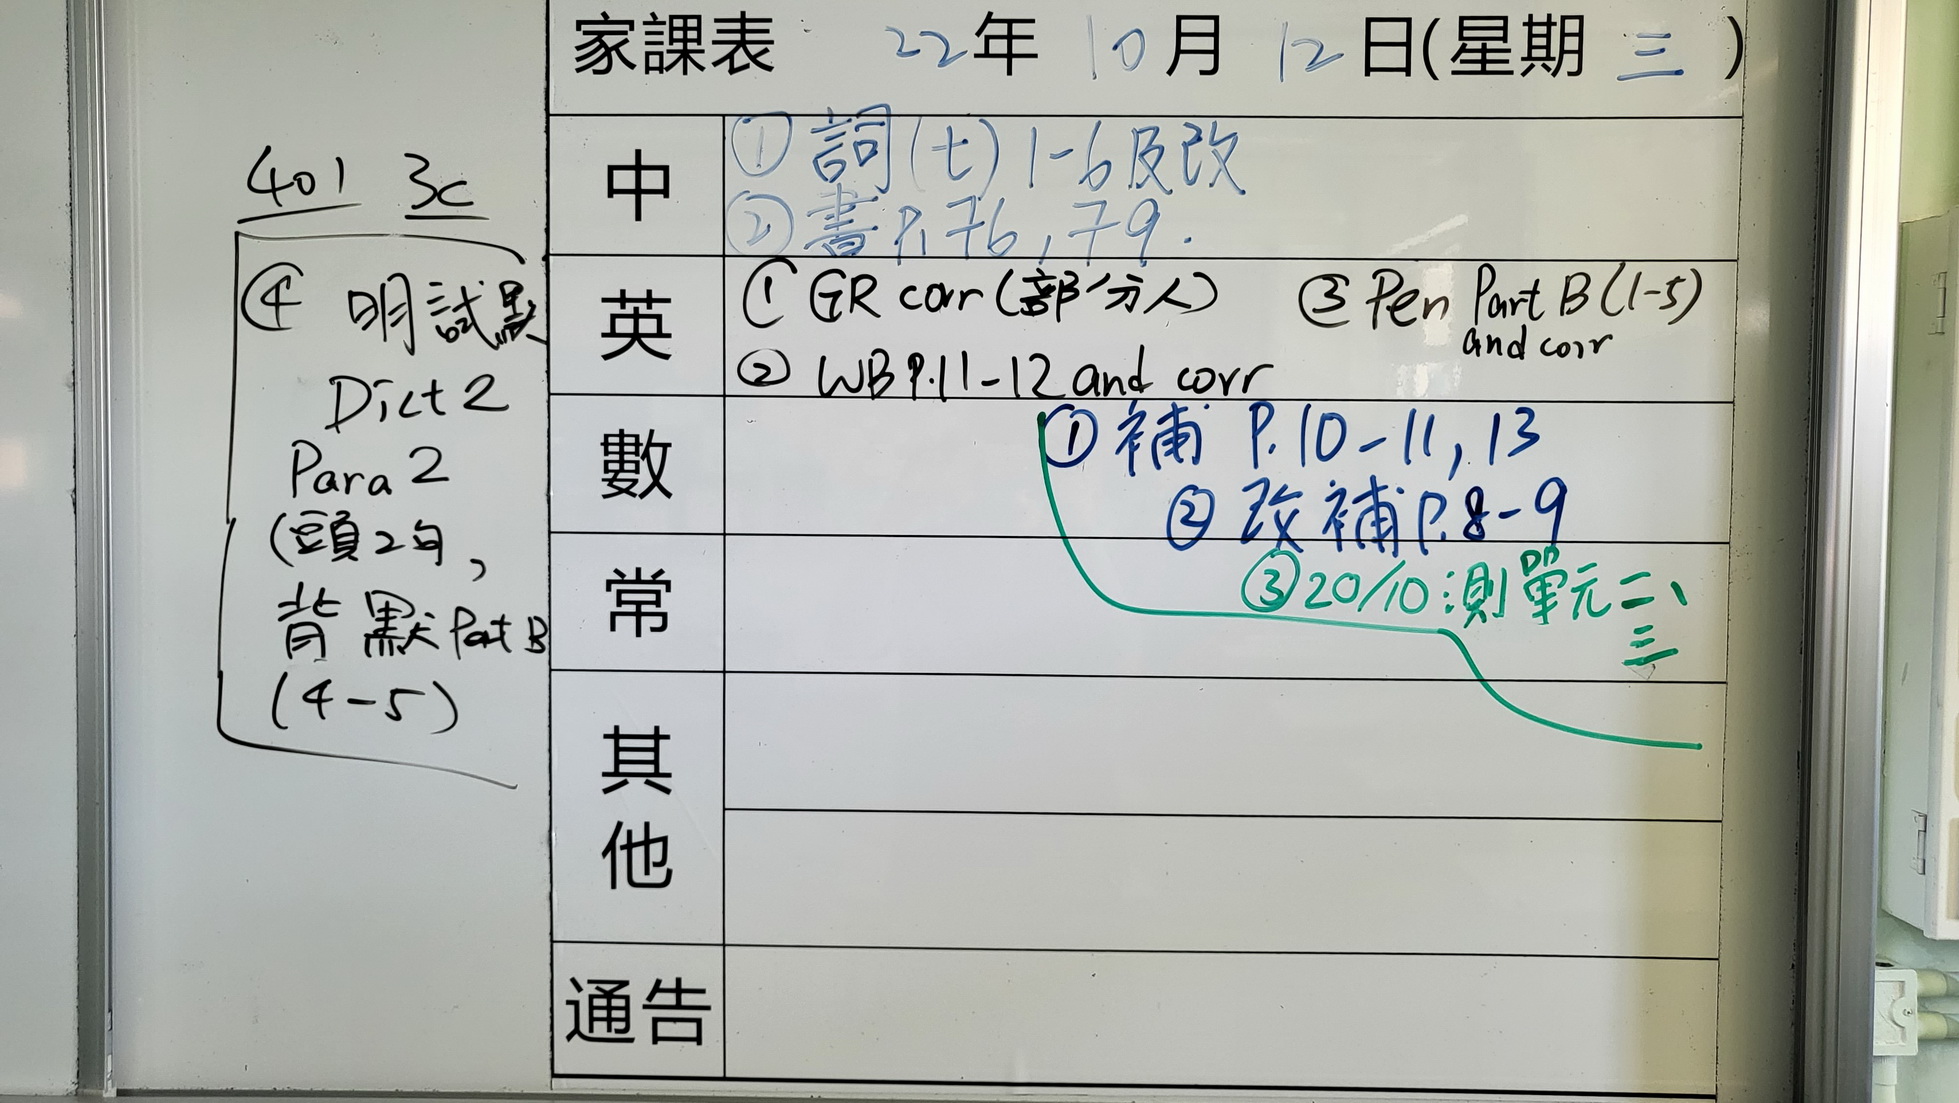 家課表 22年 10月 12日(星期 三 )
401 3C
④ 明試默
Dict 2
Para 2
(頭2句,
背默 Part B
(4-5)
中
① 詞(七) 1-6及改
② 書P.76, 79.
英
① GR corr (部分人)
② WB P.11-12 and corr
③ Pen Part B (1-5)
and corr
數
① 補 P.10-11, 13
② 改補P.8-9
③ 20/10:測單元二、
三
常
其他
通告